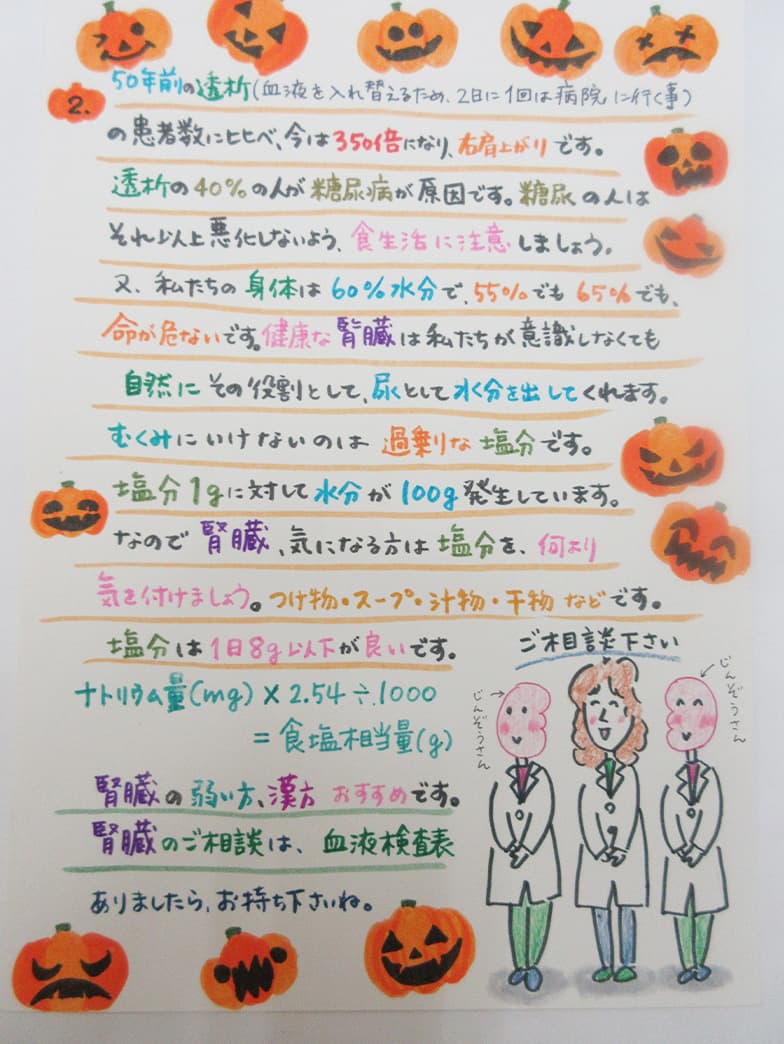 2.
50年前の透析(血液を入れ替えるため、2日に1回は病院に行く事)
の患者数にヒヒべ、今は350倍になり、右肩上がりです。
透析の40%の人が糖尿病が原因です。糖尿の人は
それ以上悪化しないよう、食生活に注意しましょう。
又、私たちの身体は60%水分で、55%でも65%でも、
命が危ないです。健康な腎臓は私たちが意識しなくても
自然にその役割として、尿として水分を出してくれます。
むくみにいけないのは過剰な塩分です。
塩分1gに対して水分が100g発生しています。
なので腎臓、気になる方は塩分を、何より
気を付けましょう。つけ物・スープ・汁物・干物などです。
塩分は1日8g以下が良いです。
ご相談下さい
ナトリウム量(mg)×2.54÷1000
=食塩相当量(g)
じんぞうさん
じんぞうさん
腎臓の弱い方、漢方おすすめです。
腎臓のご相談は、血液検査表
ありましたら、お持ち下さいね。